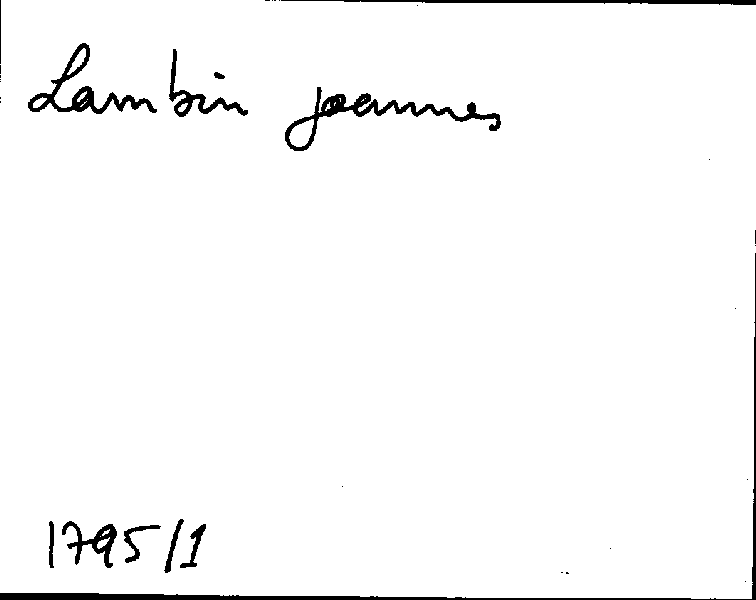 Lambin Joannes
1795/1